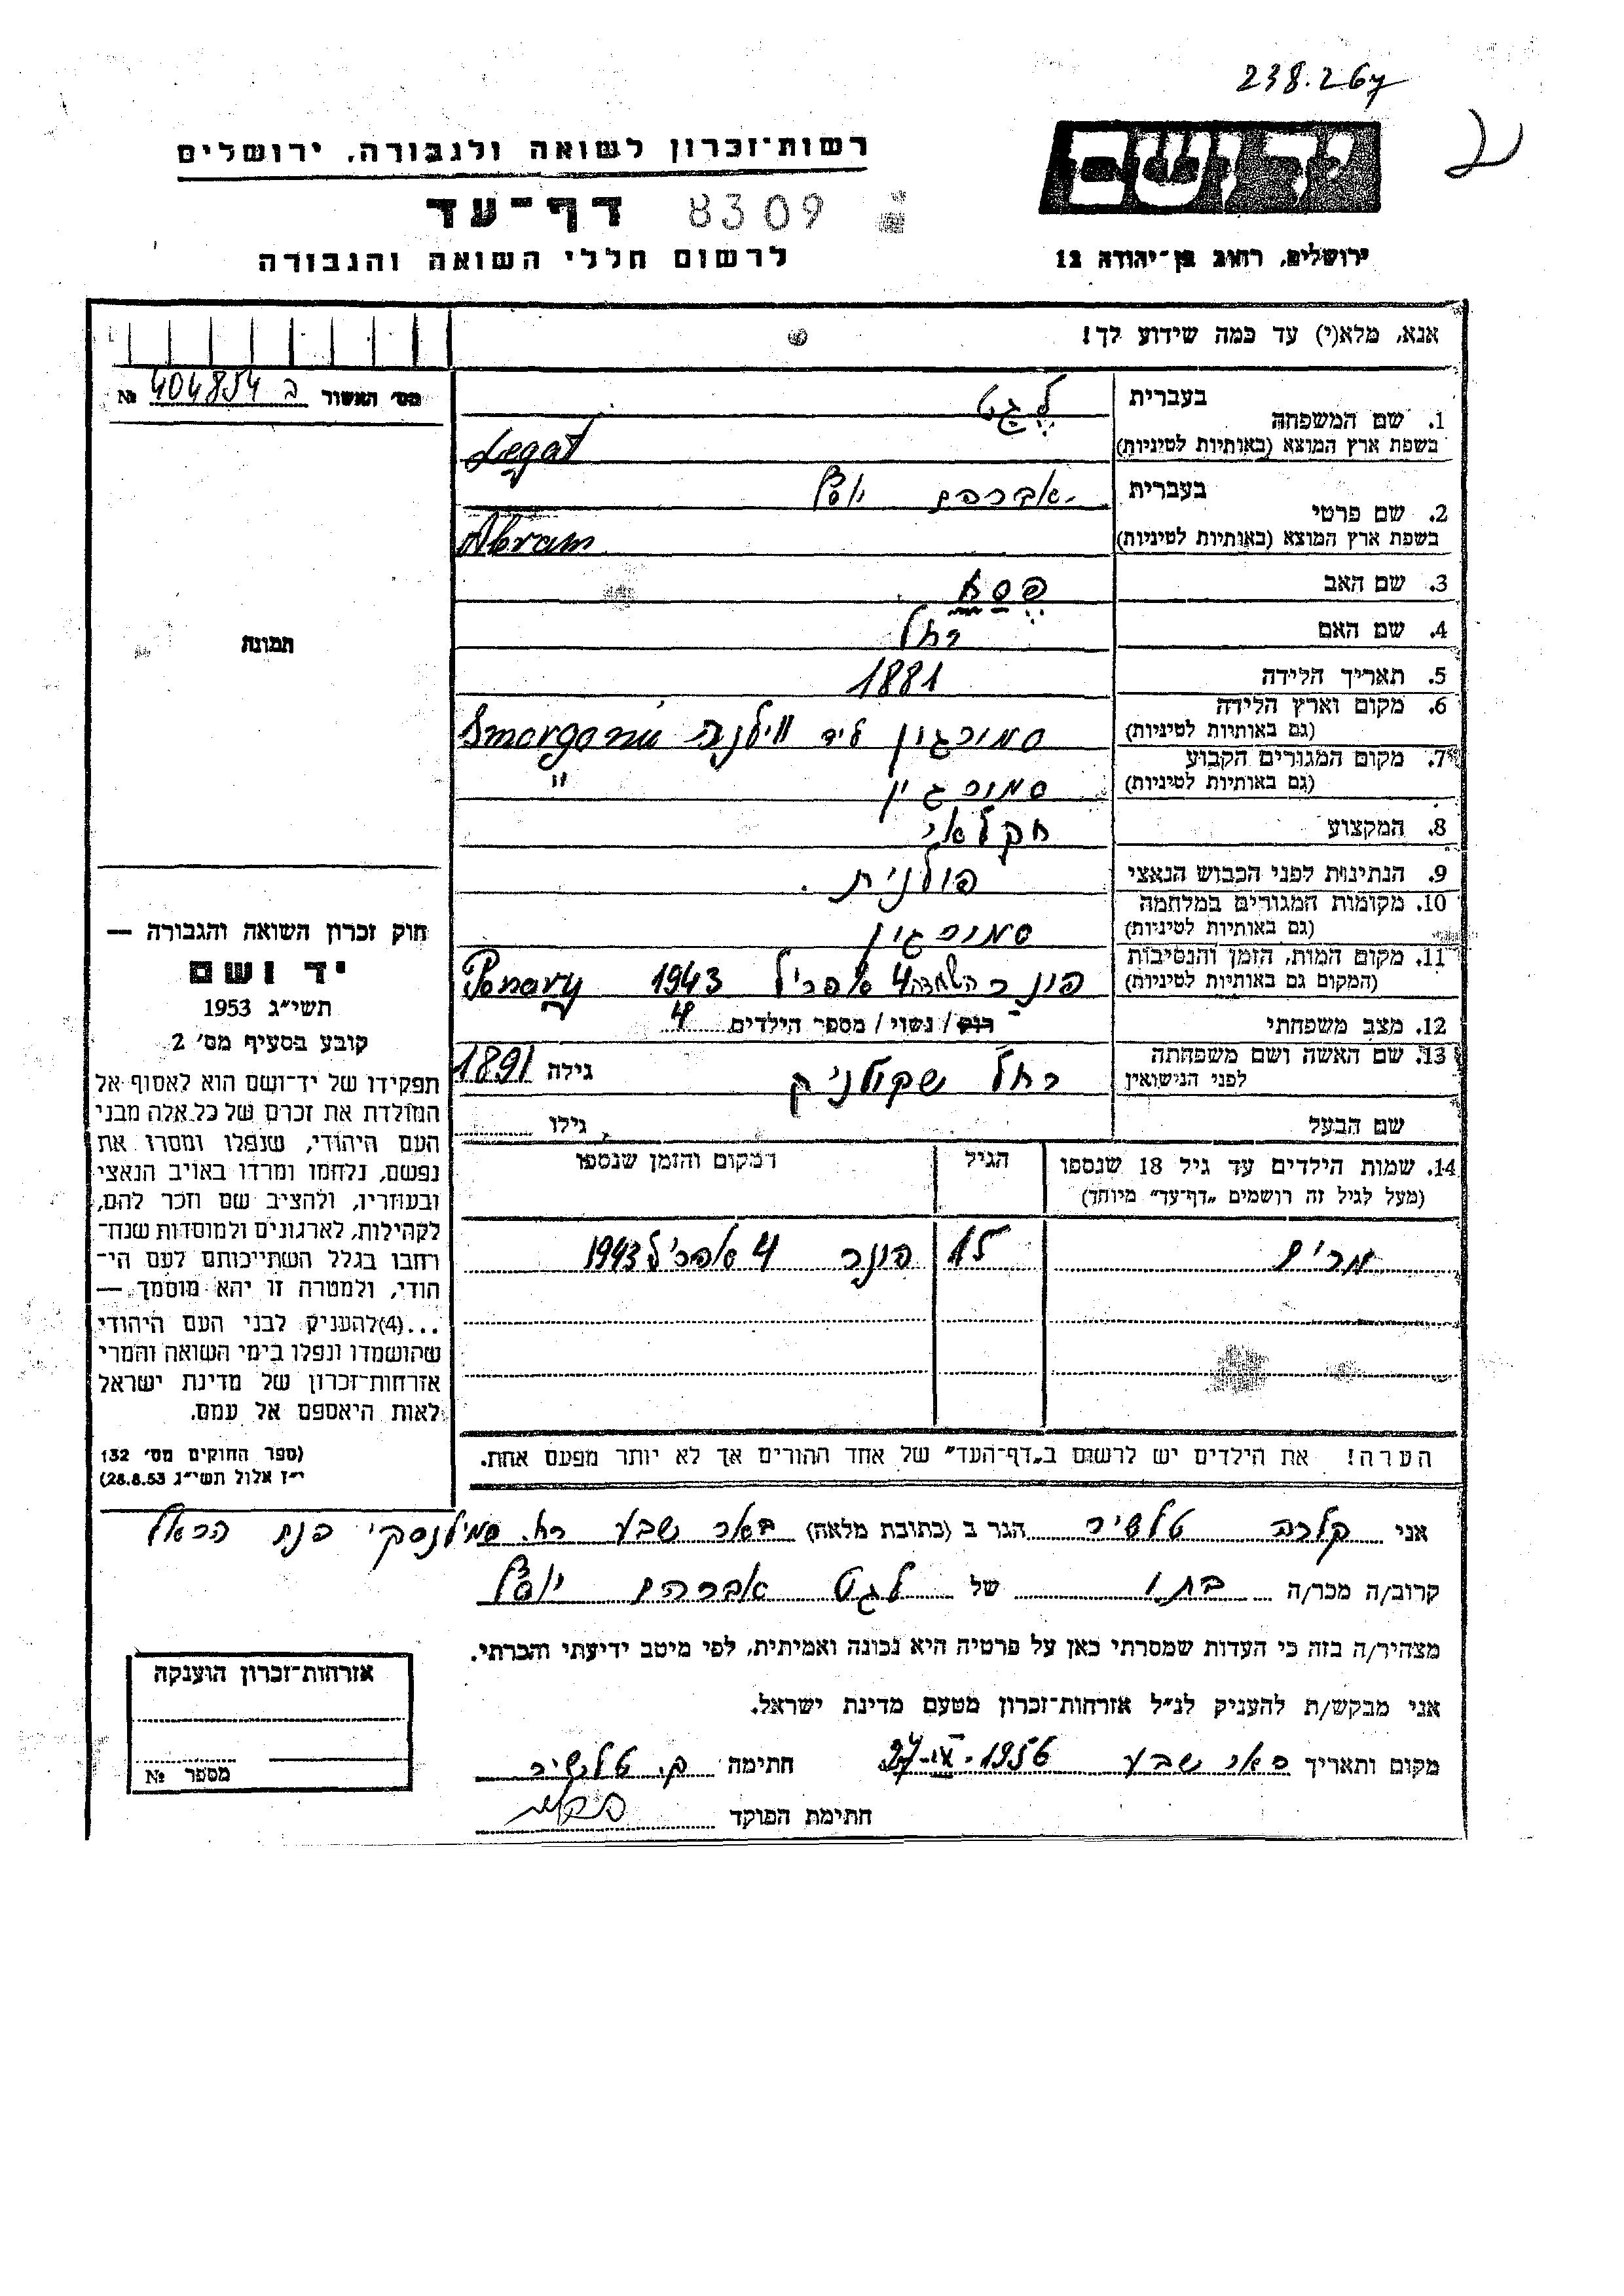 238.267
רשות־זכרון לשואה ולגבורה, ירושלים
יד ושם
דף־עד 8309
ירושלים, רחוב בן־יהודה 12
לרשום חללי השואה והגבורה
אנא, מלא(י) עד כמה שידוע לך!
מס' האשור ב 404854 №
תמונה
1. שם המשפחה
בעברית לגט
בשפת ארץ המוצא (באותיות לטיניות) Legat
2. שם פרטי
בעברית אברהם יוסל
בשפת ארץ המוצא (באותיות לטיניות) Abram
3. שם האב פסח
4. שם האם רחל
5. תאריך הלידה 1881
6. מקום וארץ הלידה
(גם באותיות לטיניות) סמורגון ליד ווילנה Smorgonie
7. מקום המגורים הקבוע
(גם באותיות לטיניות) סמורגון "
8. המקצוע חקלאי
9. הנתינות לפני הכבוש הנאצי פולנית.
10. מקומות המגורים במלחמה
(גם באותיות לטיניות) סמורגון
11. מקום המות, הזמן והנסיבות
(המקום גם באותיות לטיניות) פונר בהשמדה 4 אפריל 1943 Ponary
12. מצב משפחתי רוק / נשוי / מספר הילדים 4
13. שם האשה ושם משפחתה
לפני הנישואין רחל שקולניק גילה 1891
שם הבעל גילו
14. שמות הילדים עד גיל 18 שנספו הגיל המקום והזמן שנספו
(מעל לגיל זה רושמים „דף־עד" מיוחד)
מרים 15 פונר 4 אפריל 1943
הערה! את הילדים יש לרשום ב„דף־העד" של אחד ההורים אך לא יותר מפעם אחת.
חוק זכרון השואה והגבורה —
יד ושם
תשי"ג 1953
קובע בסעיף מס' 2
תפקידו של יד־ושם הוא לאסוף אל
המולדת את זכרם של כל אלה מבני
העם היהודי, שנפלו ומסרו את
נפשם, נלחמו ומרדו באויב הנאצי
ובעוזריו, ולהציב שם וזכר להם,
לקהילות, לארגונים ולמוסדות שנח־
רחבו בגלל השתייכותם לעם הי־
הודי, ולמטרה זו יהא מוסמך —
...(4)להעניק לבני העם היהודי
שהושמדו ונפלו בימי השואה והמרי
אזרחות־זכרון של מדינת ישראל
לאות היאספם אל עמם.
(ספר החוקים מס' 132
י"ז אלול תשי"ג 28.8.53)
אני קלרה טלשיר הגר ב (כתובת מלאה) באר שבע רח. סמילנסקי פנת הראל
קרוב/ה מכר/ה בתו של לגט אברהם יוסל
מצהיר/ה בזה כי העדות שמסרתי כאן על פרטיה היא נכונה ואמיתית, לפי מיטב ידיעתי והכרתי.
אני מבקש/ת להעניק לנ"ל אזרחות־זכרון מטעם מדינת ישראל.
מקום ותאריך באר שבע 1956 חתימה ק. טלשיר
חתימת הפוקד
אזרחות־זכרון הוענקה
מספר №